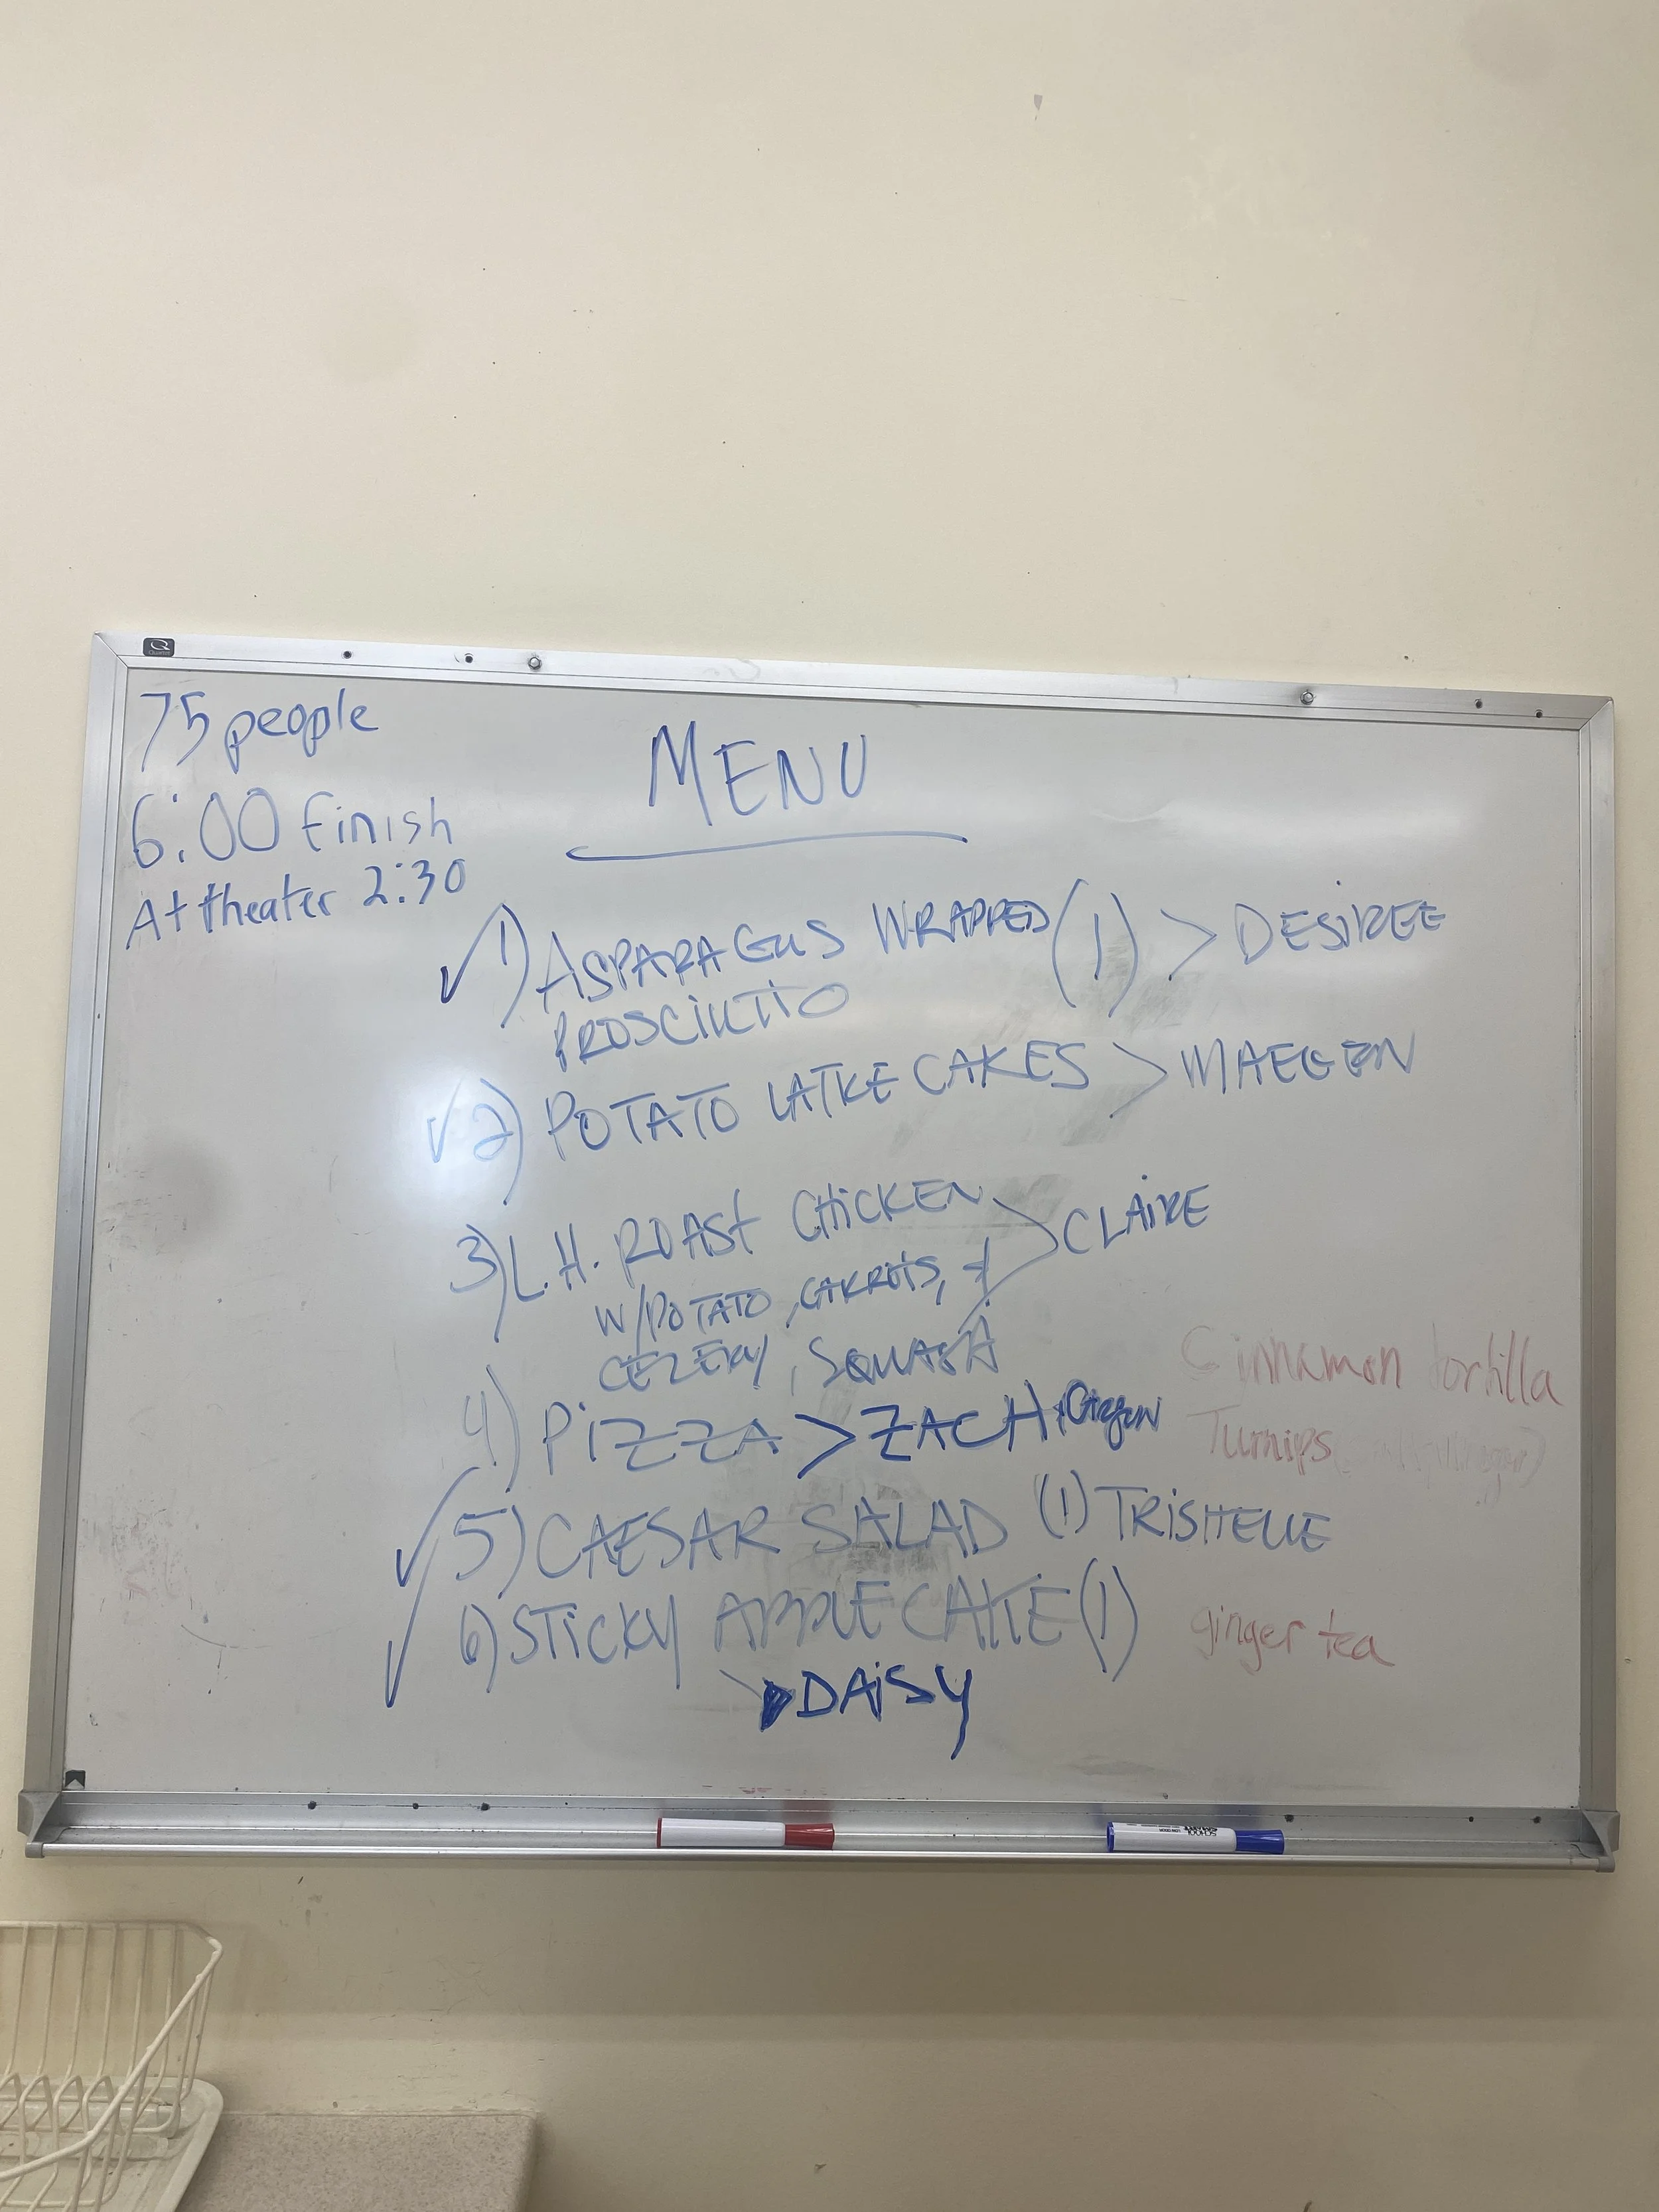 75 people
6:00 finish
At theater 2:30
MENU
✓ 1) ASPARAGUS WRAPPED (1) > DESIREE
PROSCIUTTO
✓ 2) POTATO LATKE CAKES > MAEGEN
3) L.H. ROAST CHICKEN > CLAIRE
W/POTATO, CARROTS, +
CELERY, SQUASH
4) PIZZA > ZACH,
✓ 5) CAESAR SALAD (1) TRISHELLE
✓ 6) STICKY APPLE CAKE (1)
DAISY
Cinnamon tortilla
Turnips
ginger tea
Quartet
SCHOOL SMART